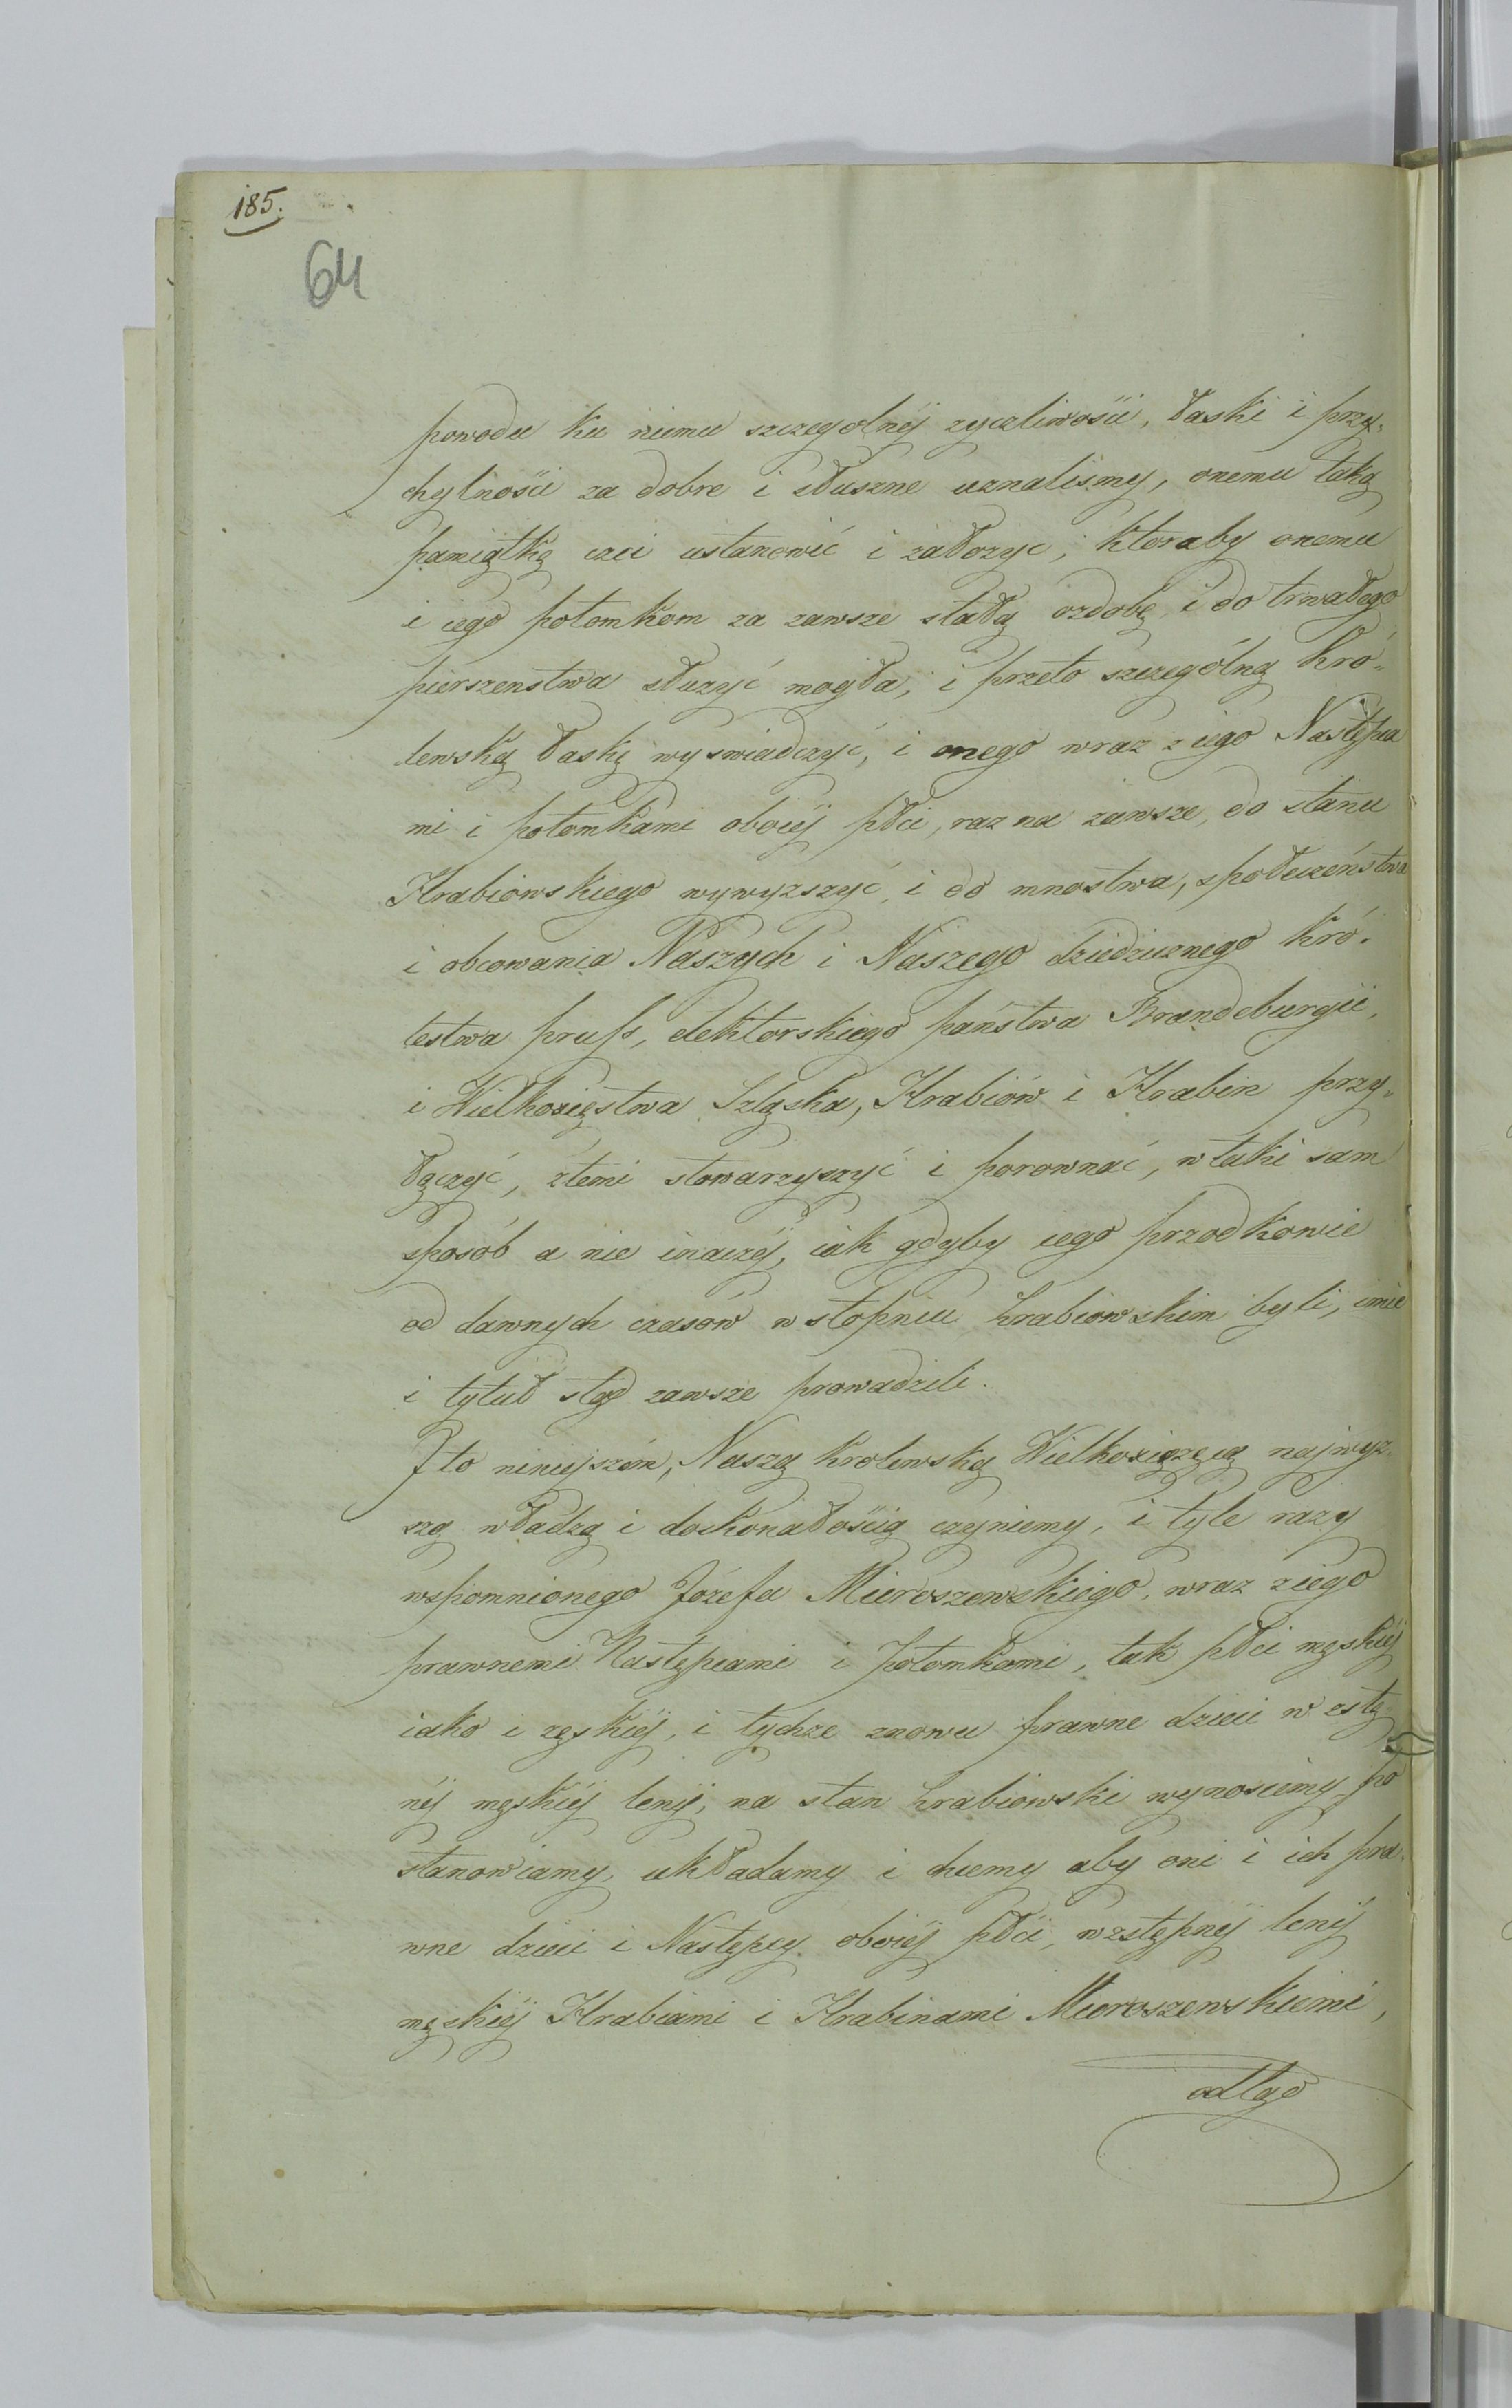 185.
64
powodu ku niemu szczegolnéj zyczliwości, łaski i przy„
chylności za dobre i słuszne uznalismy, onemu taką
pamiątkę czci ustanowić i załozyc, ktoraby onemu
i iego potomkom za zawsze stałą ozdobę i do trwałego
pierszenstwa słuzyć mogła, i przeto szczególną Kró„
lewską łaskę wyswiadczyć, i onego wraz z iego Następca
mi i potomkami oboiéj płci, raz na zawsze, do stanu
Hrabiowskiego wywyzszyć, i do mnostwa, społeczeństwa
i obcowania Naszych i Naszego dziedzicznego Kró„
lestwa pruss, elektorskiego państwa Brandeburgii,
i Wielkoxięstwa Szląska, Hrabiów i Hrabin przy„
łączyć, z temi stowarzyszyć i porownać, w taki sam
sposób a nie inaczéj, iak gdyby iego przodkowie
od dawnych czasów w stopniu hrabiowskim byli, imie
i tytuł stąd zawsze prowadzili.
I to niniejszém, Naszą Krolewską Wielkoxiążęcą najwyz„
szą władzą i doskonałością czyniemy, i tyle razy
wspomnionego Józefa Mieroszewskiego, wraz z iego
prawnemi Następcami i potomkami, tak płci męskiéj
iako i zęskiéj, i tychze znowu prawne dzieci w zstę
néj męskiéj lenij, na stan hrabiowski wynosiemy, po
stanowiamy, układamy i chcemy aby oni i ich pra„
wne dzieci i Następcy oboiéj płci, w zstępnéj lenij
męskiéj Hrabiami i Hrabinami Mieroszewskiemi,
odtąd